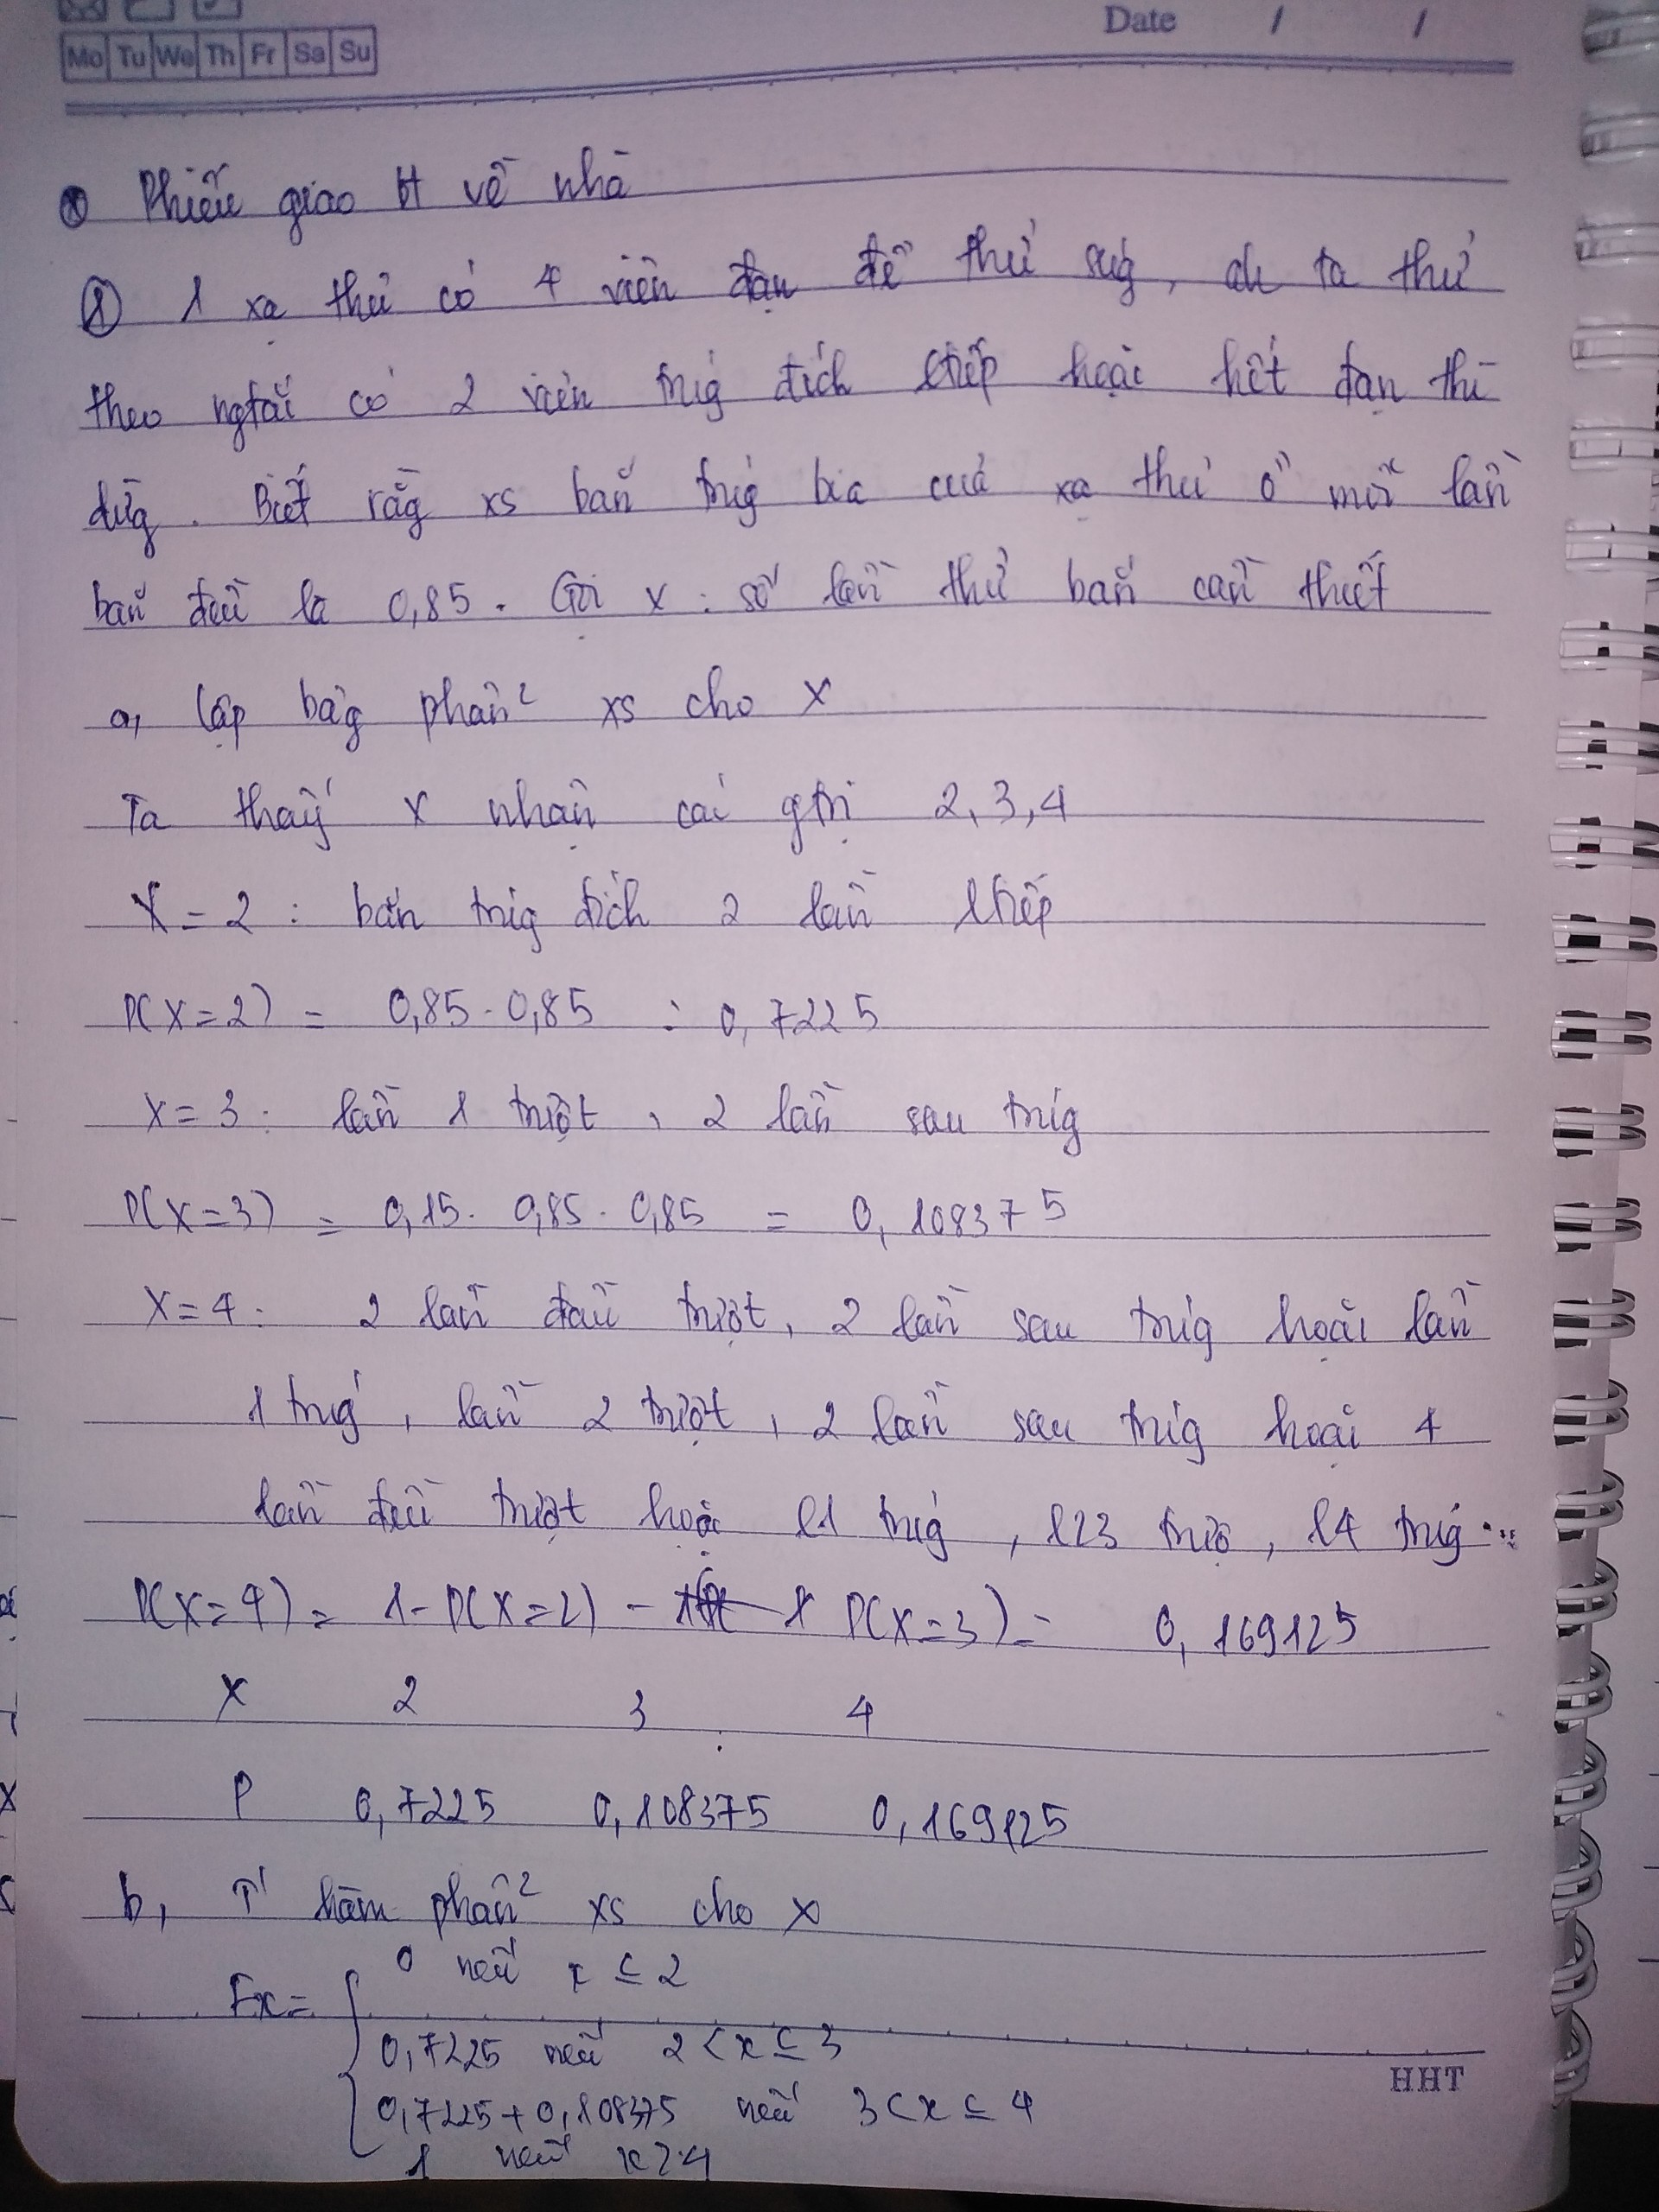 Date / /
Mo Tu We Th Fr Sa Su
Phiếu giao bt về nhà
① 1 xạ thủ có 4 viên đạn để thử súg, ah ta thử
theo ngtắc có 2 viên trúg đích ltiếp hoặc hết đạn thì
dừg. Biết rằg xs bắn trúg bia của xạ thủ ở mỗi lần
bắn đều là 0,85. Gọi X : số lần thử bắn cần thiết
a, lập bảg phân² xs cho X
Ta thấy X nhận các gtrị 2, 3, 4
X = 2 : bắn trúg đích 2 lần ltiếp
P(X=2) = 0,85 . 0,85 = 0,7225
X = 3 : lần 1 trượt, 2 lần sau trúg
P(X=3) = 0,15 . 0,85 . 0,85 = 0,108375
X = 4 : 2 lần đầu trượt, 2 lần sau trúg hoặc lần
1 trúg, lần 2 trượt, 2 lần sau trúg hoặc 4
lần đều trượt hoặc l1 trúg, l23 trượ, l4 trúg ...
P(X=4) = 1 - P(X=2) - P(X=3) = 0,169125
X 2 3 4
P 0,7225 0,108375 0,169125
b, T' hàm phân² xs cho X
0 nếu x ≤ 2
Fx =
0,7225 nếu 2 < x ≤ 3
0,7225 + 0,108375 nếu 3 < x ≤ 4
1 nếu x > 4
HHT